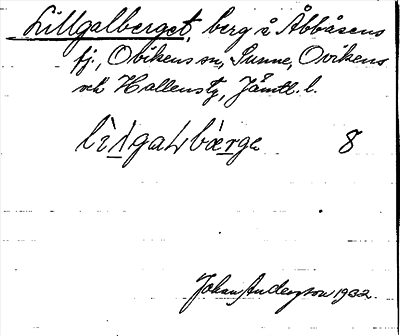 Lillgalberget, berg å Åbbåsens
fj., Ovikens sn, Sunne, Ovikens
och Hallens tg, Jämtl. l.
lìlgaḷbærge 8
Johan Anderszon 1932.